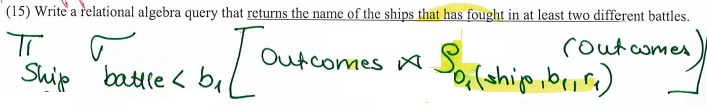 (15) Write a relational algebra query that returns the name of the ships that has fought in at least two different battles.
π Ship σ battle < b₁ [ Outcomes ⋈ ρ O₁(ship, b₁, r₁) (Outcomes) ]